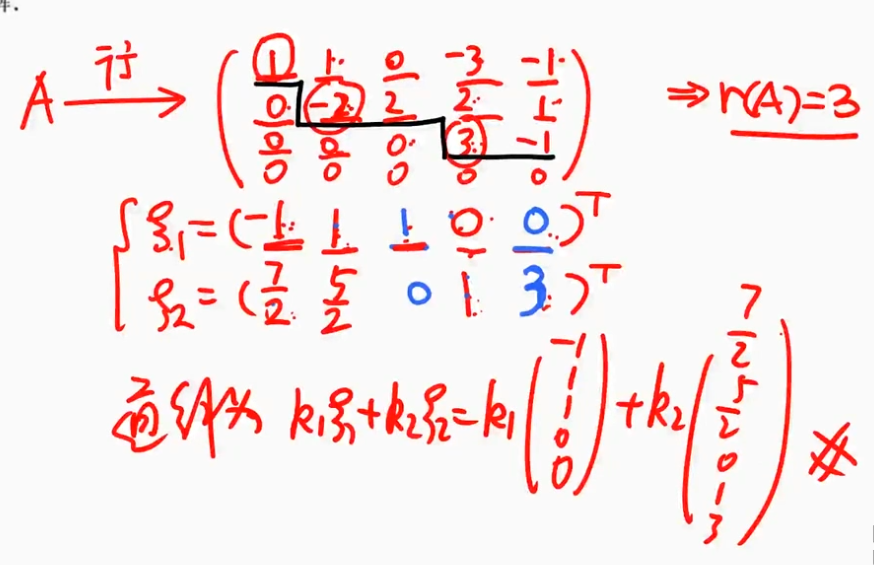 件.
A 行→ ( 1 1 0 -3 -1 ) ⇒ r(A)=3
0 -2 2 2 1
0 0 0 3 -1
0 0 0 0 0
{ ξ1=(-1 1 1 0 0)ᵀ
ξ2=(7/2 5/2 0 1 3)ᵀ
通解为 k1ξ1+k2ξ2=k1(-1 1 1 0 0)+k2(7/2 5/2 0 1 3)